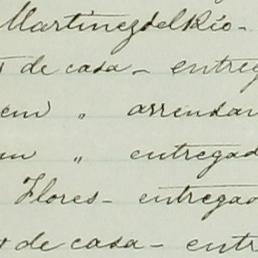 Martinez del Rio -
de casa - entreg
em " arrendan
m " entregad
Flores - entregad
de casa - entr